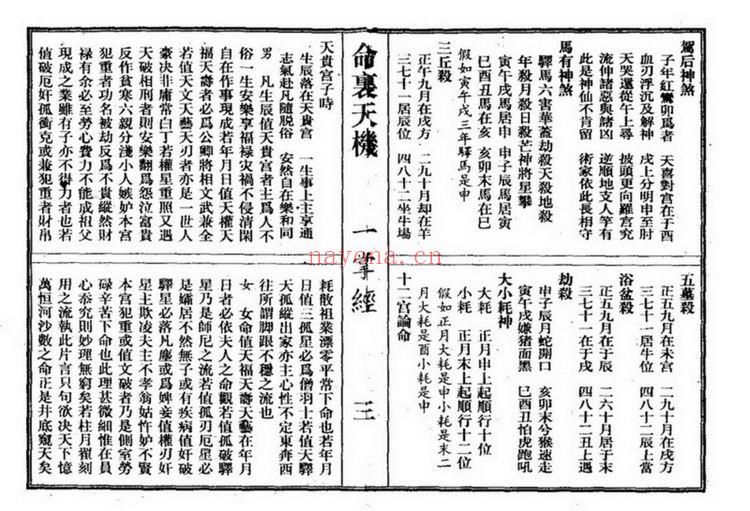 駕后神煞
子年紅鸞卯爲者 天喜對宮在于酉
血刃浮沉及解神 戌上分明申至肘
天哭還從午上尋 披頭更向羅宮究
流伸諸惡與諸凶 逆順地支人竿有
此是神仙不肯留 術家依此長相守
馬有神煞
驛馬六害華蓋劫殺天殺地殺
年殺月殺日殺芒神將星攀
寅午戌馬居申 申子辰馬居寅
巳酉丑馬在亥 亥卯未馬在巳
假如寅午戌三年驛馬是申
三丘殺
正午九月在戌方 二九十月却在羊
三七十一居辰位 四八十二坐牛場
五墓殺
正五九月在未宮 二九十月在戌方
三七十一居牛位 四八十二辰上當
浴盆殺
正五九月在于辰 二六十月居于未
三七十一在于戌 四八十二丑上遇
劫殺
申子辰月蛇開口 亥卯未兮猴速走
寅午戌嫌猪面黑 巳酉丑怕虎跑吼
大小耗神
大耗 正月申上起順行十位
小耗 正月未上起順行十二位
假如正月大耗是申小耗是未二
月大耗是酉小耗是申
十二宮論命
命裏天機 一掌經 三
天貴宮子時
生辰落在天貴宮 一生事上主享通
志氣赴凡隨脱俗 安然自在樂和同
男 凡生辰值天貴宮者主爲人不
俗一生安樂享福祿灾禍不侵清閑
自在作事現成若年月日值天權天
福天壽者必爲公卿將相文武兼全
若值天文天藝天刃者亦是一世人
豪決非庸常白丁若權星重照又遇
天破相刑者即安樂翻爲怨泣富貴
反作貧寒六親分淺小人嫉妒本宮
犯重者功名被劫反爲不貴縱然財
祿有余必至勞心費力不能成祖父
現成之業雖有子亦不得力者也若
值破厄奸孤衝克或兼犯重者財帛
耗散祖業漂零平常下命也若年月
日值三孤星必爲僧羽士若值天驛
天孤縱出家亦主心性不定東奔西
往所謂脚跟不穩之流也
女 女命值天福天壽天藝在年月
日者必依夫人之命觀若值孤破驛
星乃是師尼之流若值孤刃厄星必
是孀居不然無子或有疾病值奸破
驛星必落凡塵或爲婢妾值權刃奸
星主欺凌夫主不孝翁姑忤妒不賢
本宮犯重或值文破者乃是側室勞
碌辛苦中命也此理甚微細惟在員
心泰究則妙理無窮矣若柱月翟刻
用之流執此片言只句欲决天下憶
萬恒河沙數之命正是井底窺天矣
nayona.cn